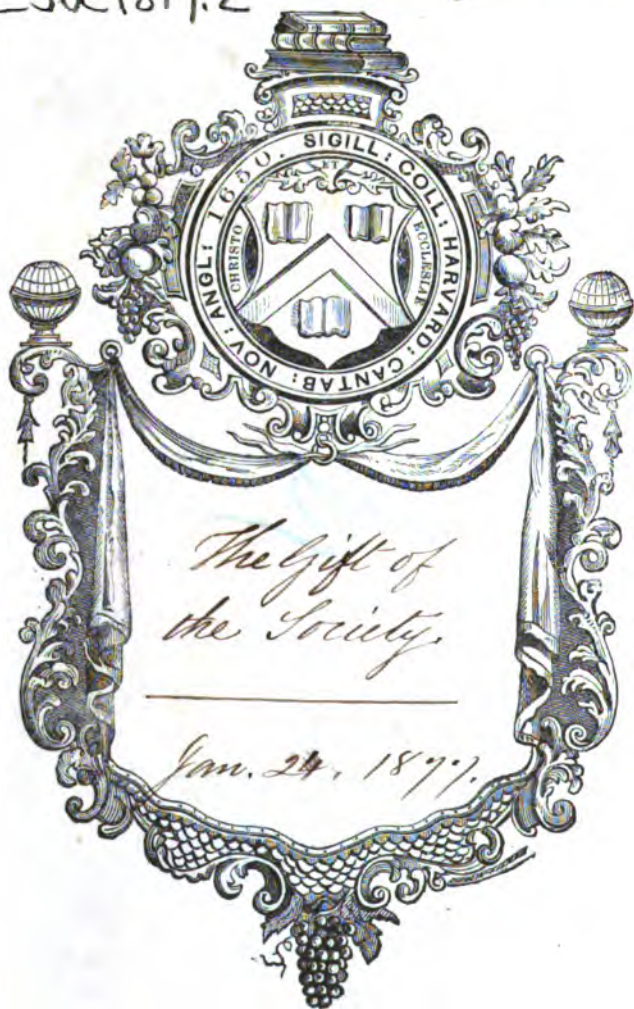 SIGILL: COLL: HARVARD: CANTAB: NOV: ANGL: 1650.
ET
CHRISTO
ECCLESIAE
The Gift of
the Society.
Jan. 24, 1877.